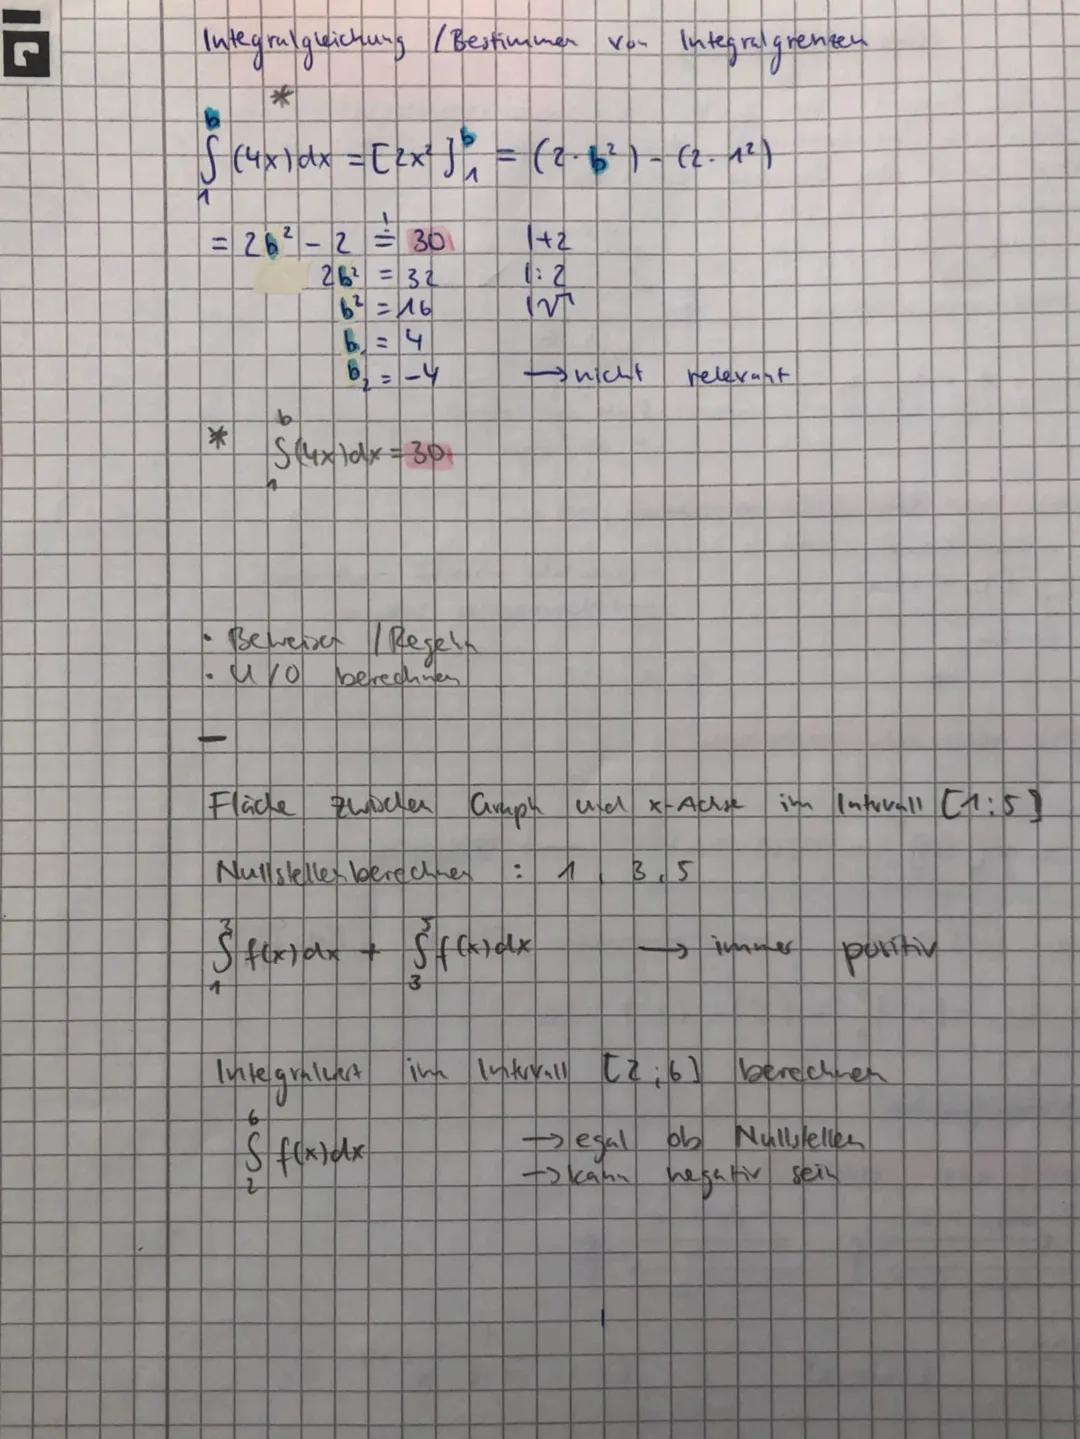 Integralgleichung / Bestimmen von Integralgrenzen
*
∫₁ᵇ (4x) dx = [2x²]₁ᵇ = (2·b²) - (2·1²)
= 2b² - 2 =! 30 |+2
2b² = 32 |:2
b² = 16 |√
b₁ = 4
b₂ = -4 → nicht relevant
* ∫₁ᵇ (4x) dx = 30
· Beweisen / Regeln
· U/O berechnen
–
Fläche zwischen Graph und x-Achse im Intervall [1:5]
Nullstellen berechnen : 1, 3, 5
∫₁³ f(x) dx + ∫₃⁵ f(x) dx → immer positiv
Integralwert im Intervall [2;6] berechnen
∫₂⁶ f(x) dx → egal ob Nullstellen
→ kann negativ sein